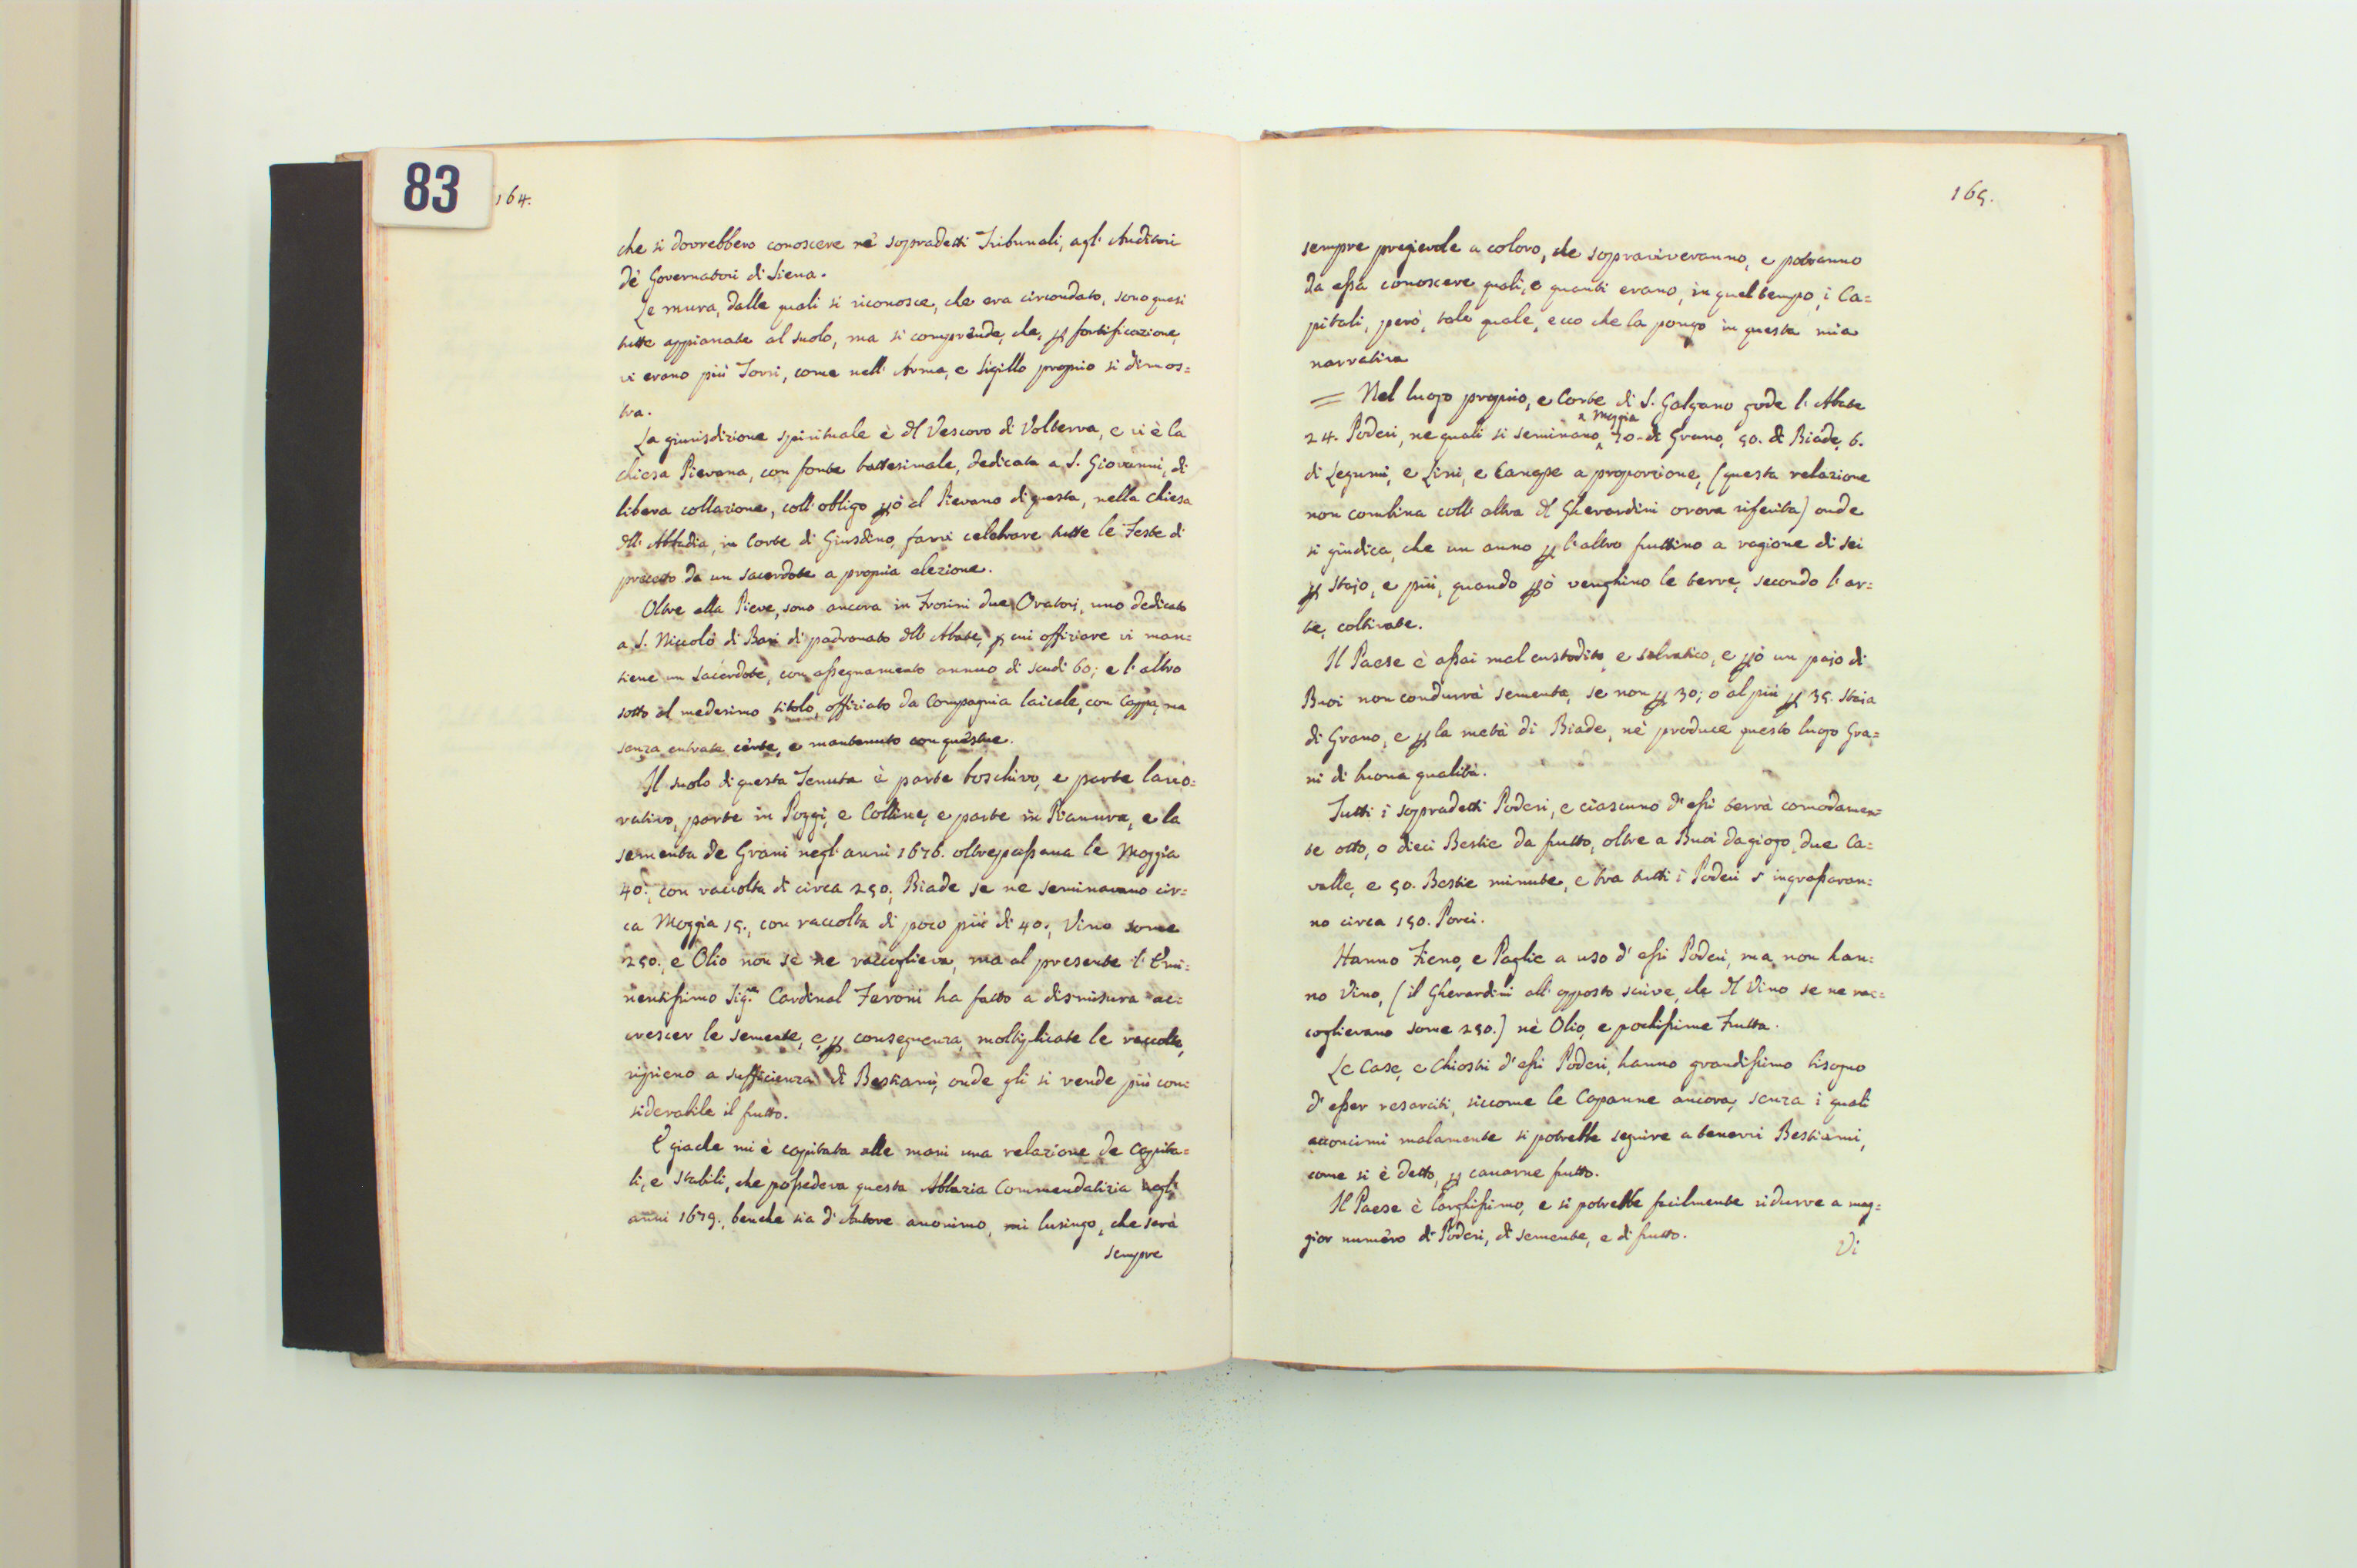 83
164.
che si dovrebbero conoscere ne' sopradetti Tribunali, agl' Auditori
de' Governatori di Siena.
Le mura, dalle quali si riconosce, che era circondato, sono quasi
tutte appianate al suolo, ma si comprende, che, p fortificazione,
vi erano più Torri, come nell' Arma, e Sigillo proprio si dimos=
tra.
La giurisdizione spirituale è dl Vescovo di Volterra, e vi è la
chiesa Pievana, con fonte battesimale, dedicata a S. Giovanni, di
libera collazione, coll' obligo pò al Pievano di questa, nella chiesa
dll' Abbadia, in Corte di Giusdino, farvi celebrare tutte le Feste di
precetto da un sacerdote a propria elezione.
Oltre alla Pieve, sono ancora in Frosini due Oratorj, uno dedicato
a S. Niccolò di Bari di padronato dll' Abate, p cui offiziare vi man=
tiene un sacerdote, con assegnamento annuo di scudi 60; e l' altro
sotto al medesimo titolo, offiziato da Compagnia laicale, con Cappa, ma
senza entrate certe, e mantenuto con questue.
Il suolo di questa Tenuta è parte boschivo, e parte lavo=
rativo, parte in Poggi, e Colline, e parte in Pianura, e la
sementa de Grani negl' anni 1676. oltrepassava le Moggia
40., con raccolta di circa 250., Biade se ne seminavano cir=
ca Moggia 15., con raccolta di poco più di 40., Vino some
250., e Olio non se ne raccoglieva, ma al presente l' Emi=
nentissimo Sig.r Cardinal Feroni ha fatto a dismisura ac=
crescer le semente, e, p conseguenza, moltiplicate le raccolte,
ripieno a sufficienza di Bestiami, onde gli si rende più con=
siderabile il frutto.
E giache mi è capitata alle mani una relazione de Capita=
li, e Stabili, che possedeva questa Abbazia Commendatizia negli
anni 1679., benche sia d' Autore anonimo, mi lusingo, che serà
sempre
165.
sempre pregievole a coloro, che sopraviveranno, e potranno
da essa conoscere quali, e quanti erano, in quel tempo, i Ca=
pitali, però, tale quale, ecco che la pongo in questa mia
narrativa
= Nel luogo proprio, e Corte di S. Galgano gode l' Abate
a Moggia
24. Poderi, ne quali si seminano 70 di Grano, 50. di Biade, 6.
di Legumi, e Lini, e Canape a proporzione, (questa relazione
non combina coll' altra dl Gherardini orora riferita) onde
si giudica, che un anno p l' altro fruttino a ragione di sei
p Stajo, e più, quando pò venghino le terre, secondo l' ar=
te, coltivate.
Il Paese è assai mal custodito, e salvatico, e pò un pajo di
Buoi non condurrà sementa, se non p 30; o al più p 35. Staia
di Grano, e p la metà di Biade, nè produce questo luogo Gra=
ni di buona qualità.
Tutti i sopradetti Poderi, e ciascuno d' essi terrà comodamen=
te otto, o dieci Bestie da frutto, oltre a Buoi da giogo, due Ca=
valle, e 50. Bestie minute, e tra tutti i Poderi s' ingrasseran=
no circa 150. Porci.
Hanno Fieno, e Paglie a uso d' essi Poderi, ma non han=
no Vino, (il Gherardini all' opposto scrive, che dl Vino se ne rac=
coglievano some 250.) nè Olio, e pochissime Frutta.
Le Case, e Chiostri d' essi Poderi, hanno grandissimo bisogno
d' esser resarciti, siccome le Capanne ancora, senza i quali
acconcimi malamente si potrebbe seguire a tenervi Bestiami,
come si è detto, p cavarne frutto.
Il Paese è larghissimo, e si potrebbe facilmente ridurre a mag=
gior numero di Poderi, di semente, e di frutto.
Vi